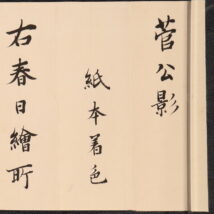 菅公影
紙本着色
右春日繪所